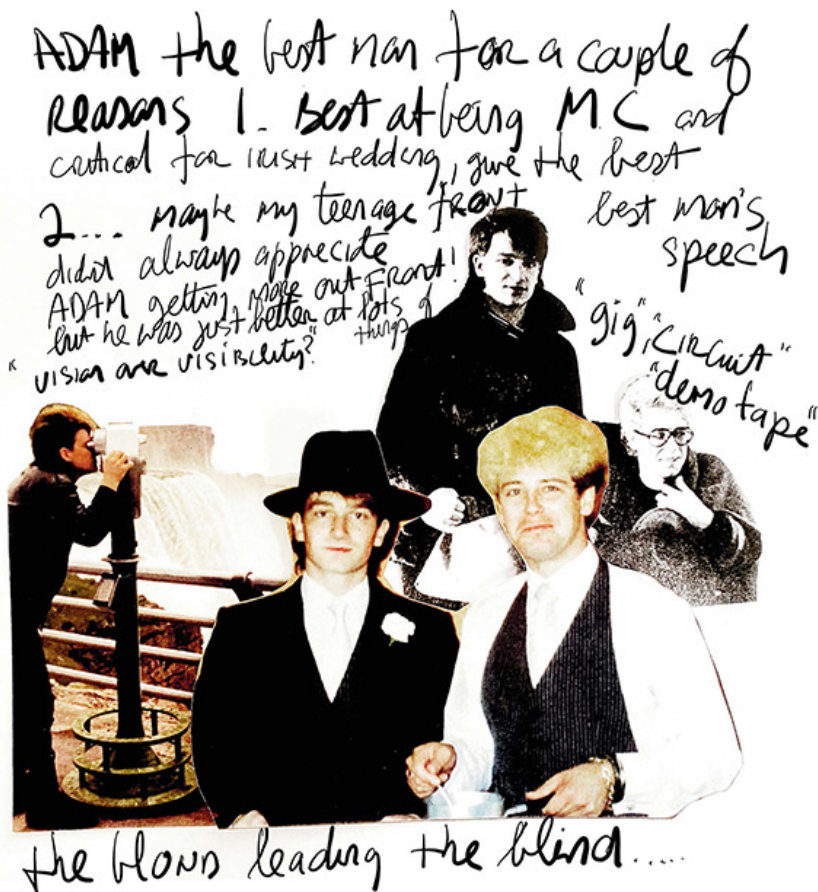 ADAM the best man for a couple of
reasons 1. Best at being M.C and
critical for Irish wedding, give the best
best man's
speech
2... maybe my teenage FRONT
didn't always apprecite
ADAM getting more out FRONT!
but he was just better at lots of
things
"vision over visibility?"
"gig", "circuit"
"demo tape"
the blond leading the blind.....